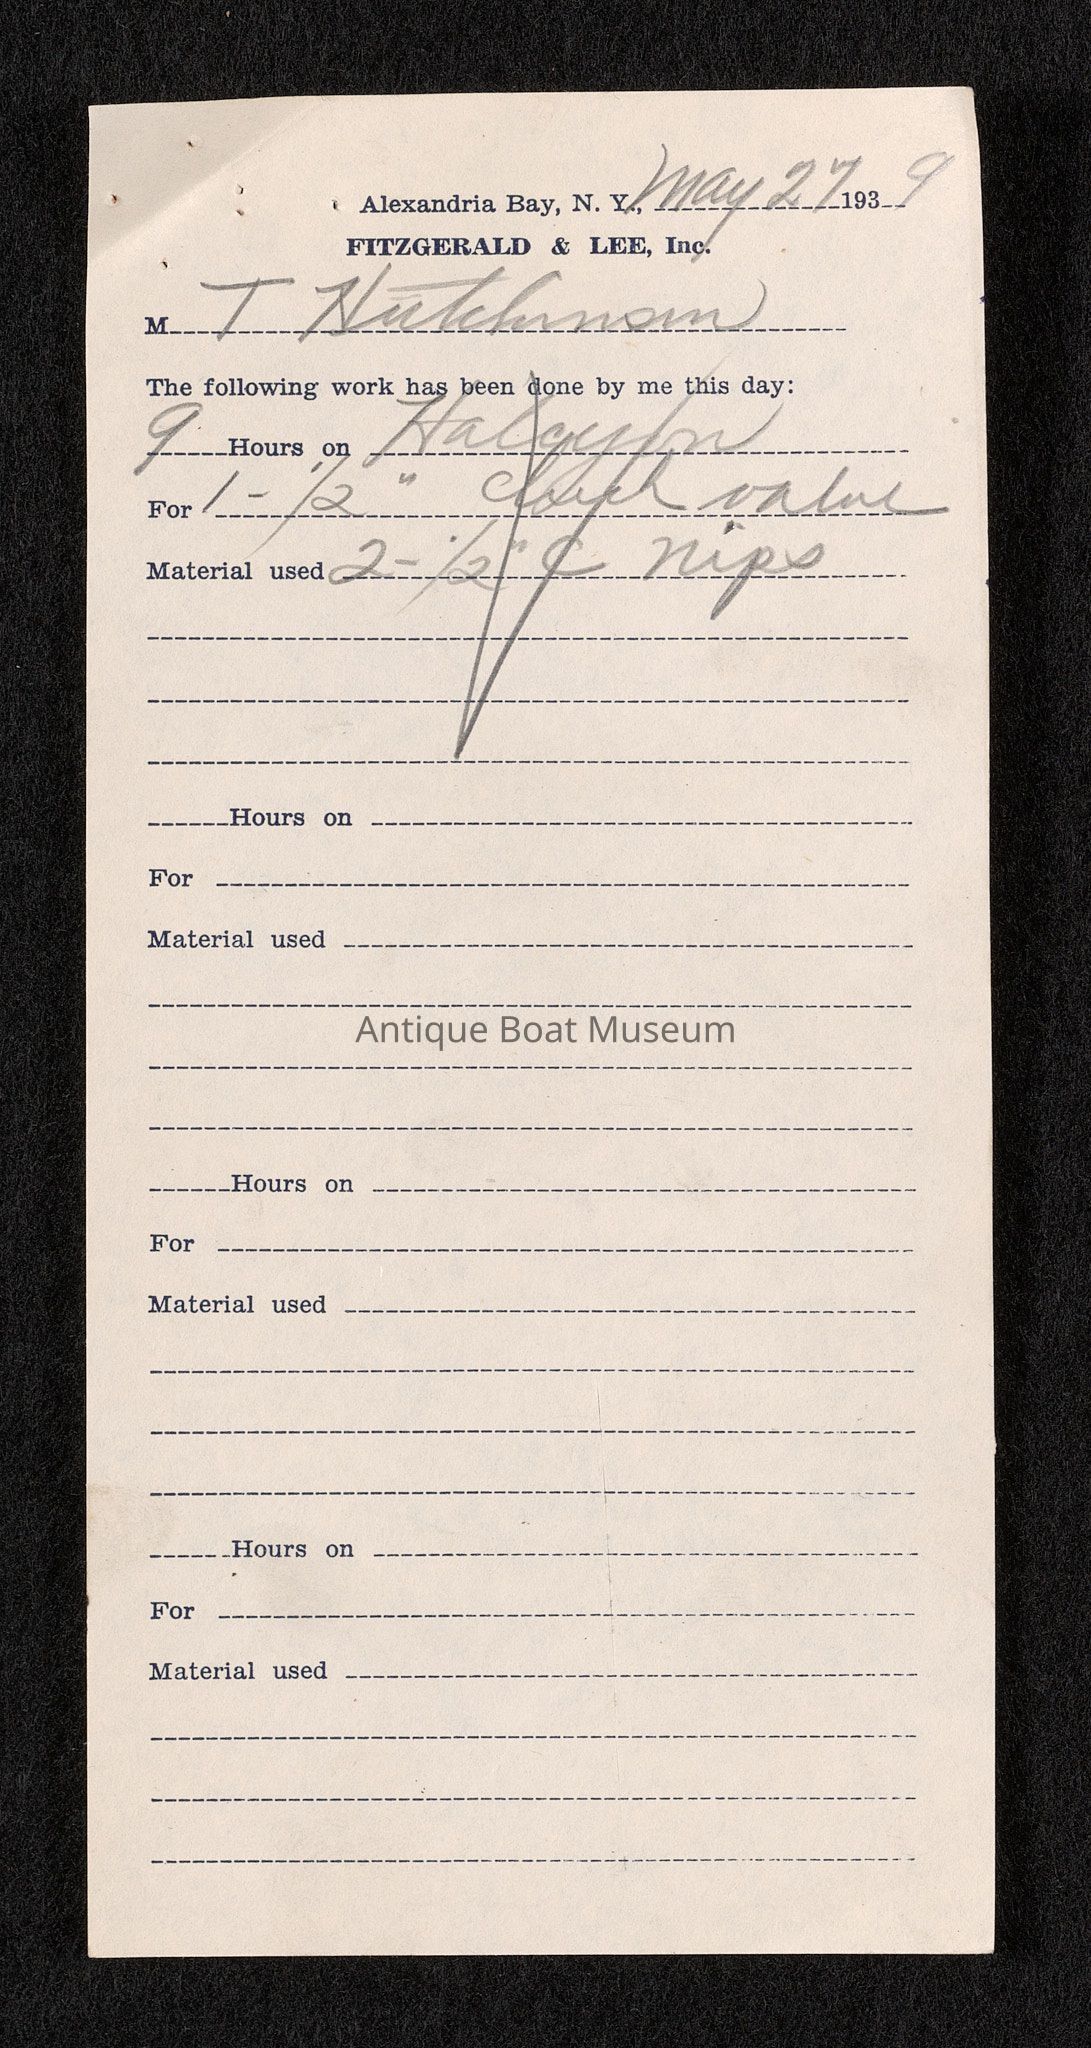 Alexandria Bay, N. Y., May 27 1939
FITZGERALD & LEE, Inc.
M T Hutchinson
The following work has been done by me this day:
9 Hours on Halcyon
For 1 - 1/2" check valve
Material used 2 - 1/2" C nips
Hours on
For
Material used
Antique Boat Museum
Hours on
For
Material used
Hours on
For
Material used